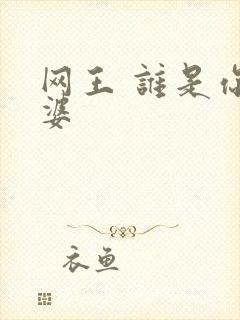 网王 誰是你
婆
衣鱼